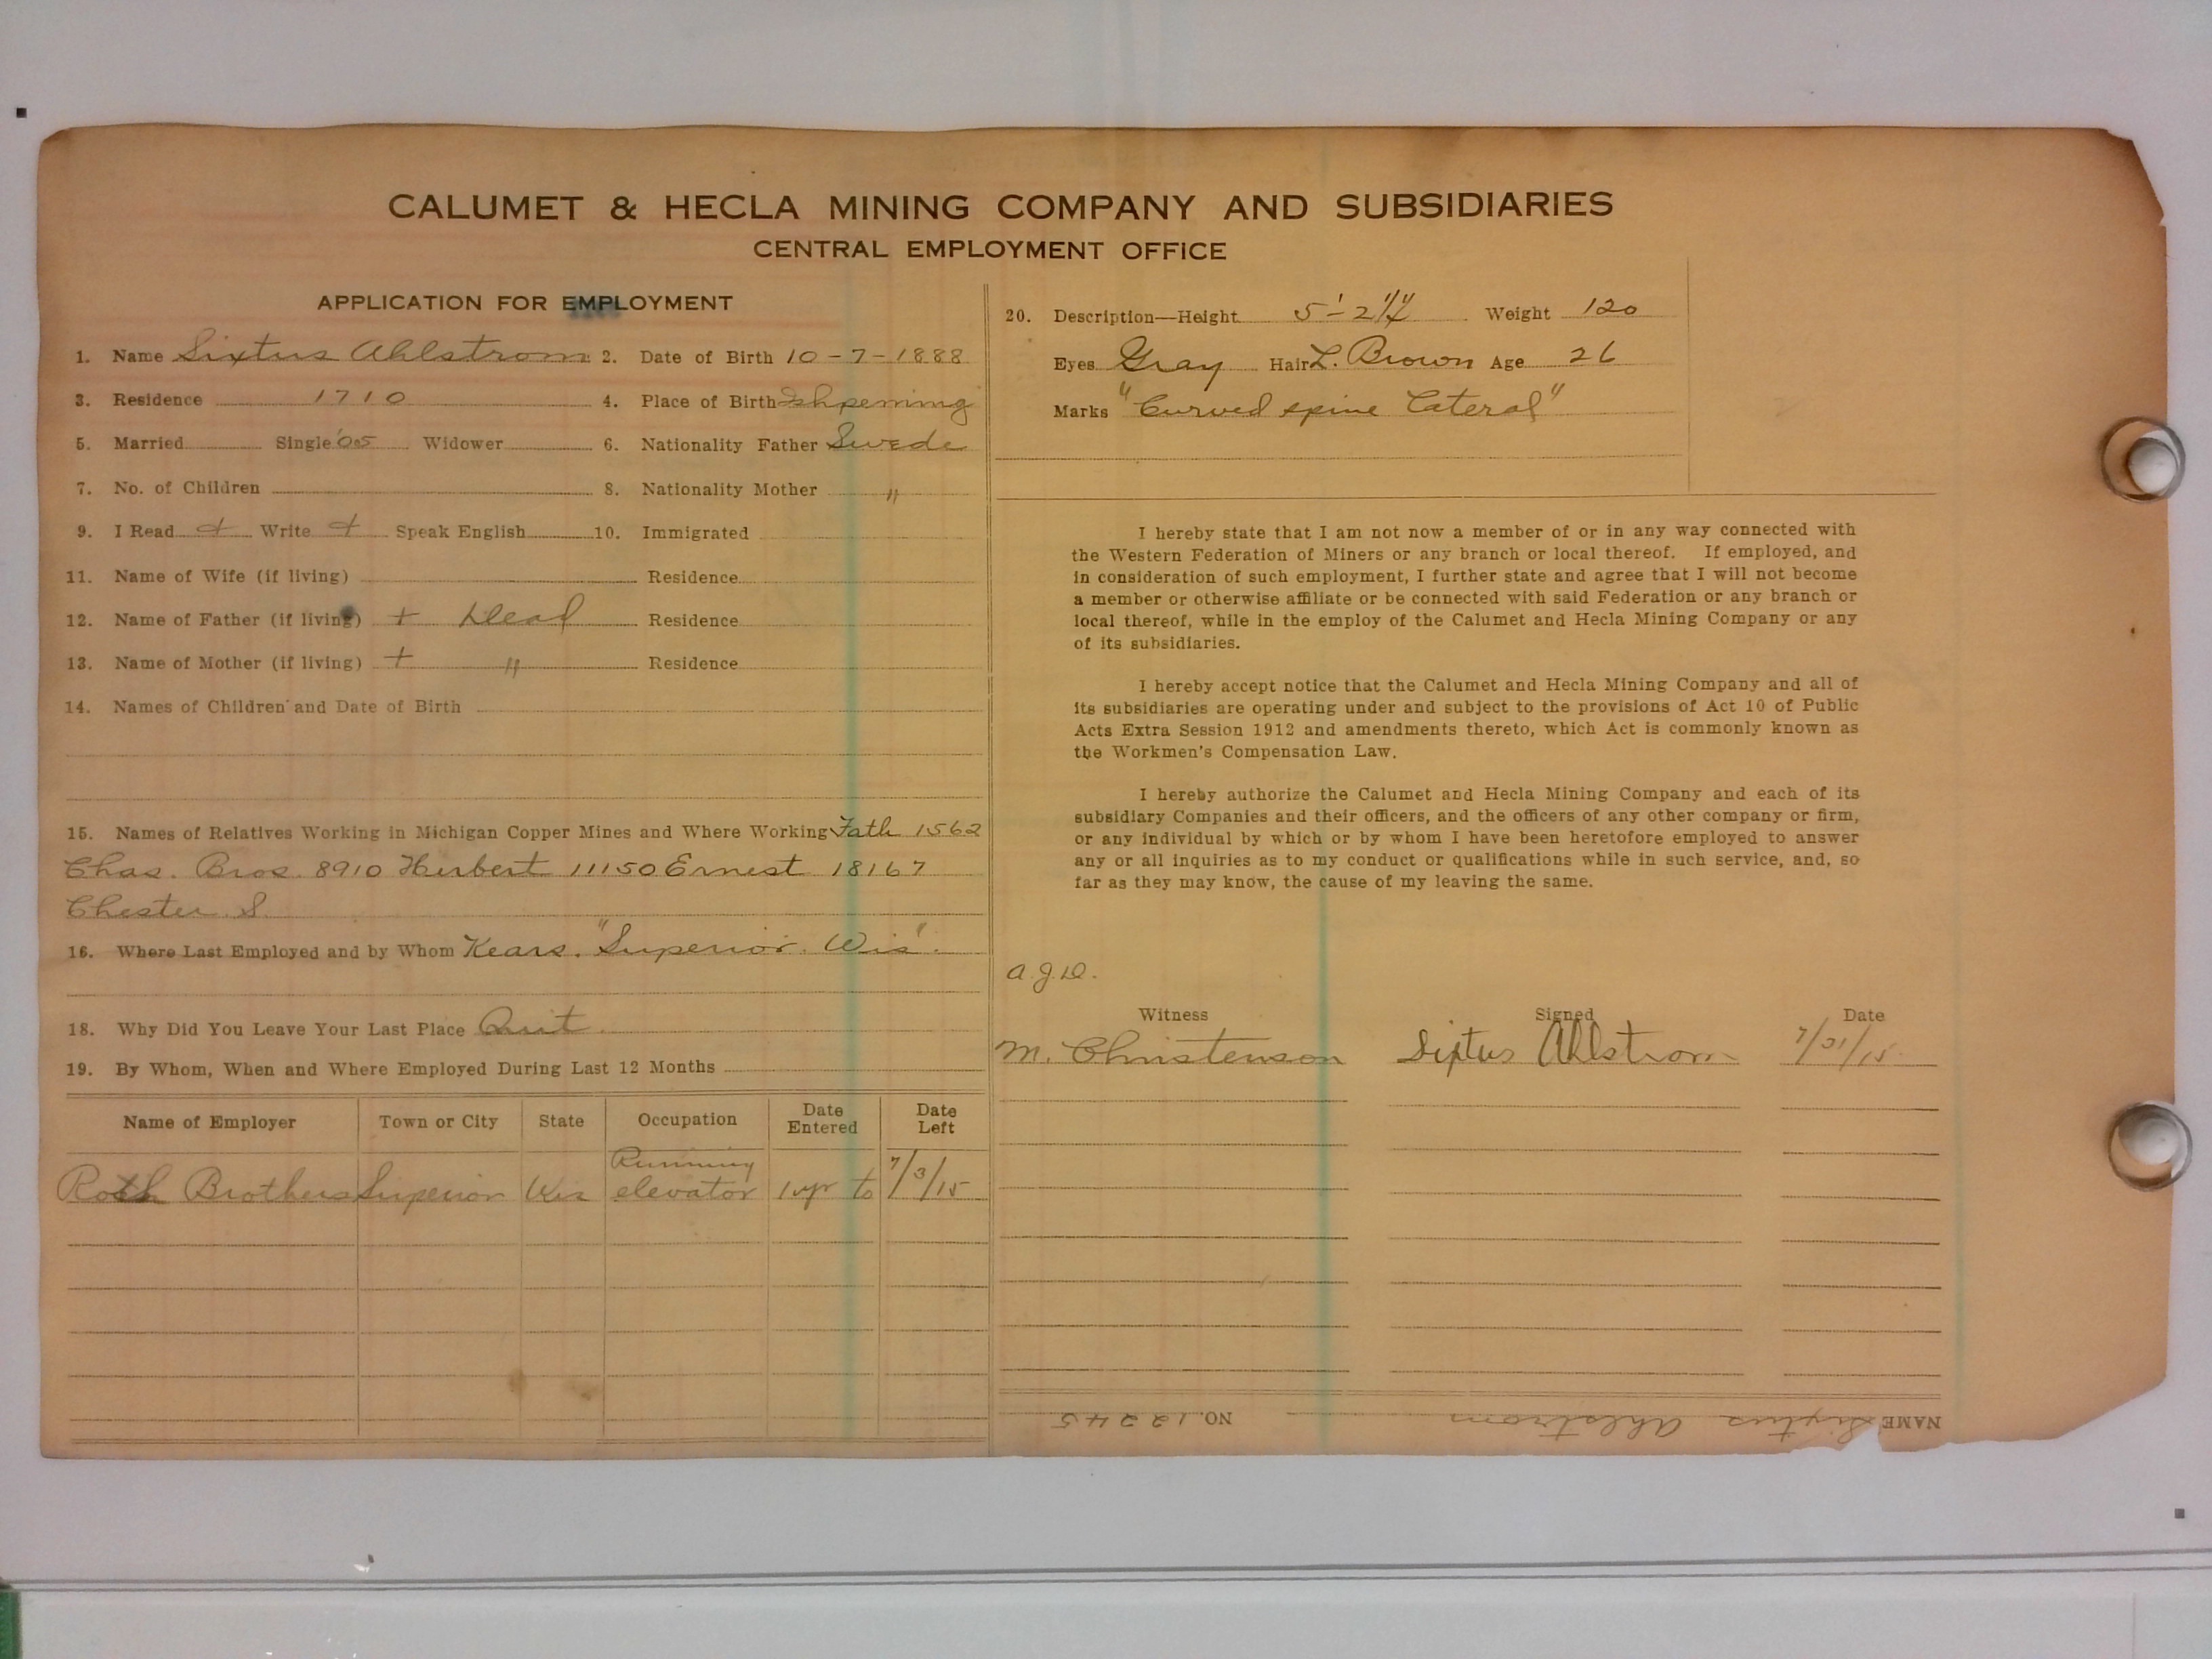 CALUMET & HECLA MINING COMPANY AND SUBSIDIARIES
CENTRAL EMPLOYMENT OFFICE
APPLICATION FOR EMPLOYMENT
1. Name Sixtus Ahlstrom 2. Date of Birth 10-7-1888
3. Residence 1710 4. Place of Birth Ishpeming
5. Married Single Widower 6. Nationality Father Swede
7. No. of Children 8. Nationality Mother "
9. I Read + Write + Speak English 10. Immigrated
11. Name of Wife (if living) Residence
12. Name of Father (if living) + Dead Residence
13. Name of Mother (if living) + " Residence
14. Names of Children and Date of Birth
15. Names of Relatives Working in Michigan Copper Mines and Where Working Fath 1562
Chas. Bros. 8910 Herbert 11150 Ernest 18167
Chester S.
16. Where Last Employed and by Whom "Superior. Wis".
18. Why Did You Leave Your Last Place Quit
19. By Whom, When and Where Employed During Last 12 Months
Name of Employer Town or City State Occupation Date Entered Date Left
Roth Brothers Superior Wis Running elevator 1 yr to 7/3/15
20. Description—Height 5'-2 1/4 Weight 120
Eyes Gray Hair L. Brown Age 26
Marks "Curved spine lateral"
I hereby state that I am not now a member of or in any way connected with
the Western Federation of Miners or any branch or local thereof. If employed, and
in consideration of such employment, I further state and agree that I will not become
a member or otherwise affiliate or be connected with said Federation or any branch or
local thereof, while in the employ of the Calumet and Hecla Mining Company or any
of its subsidiaries.
I hereby accept notice that the Calumet and Hecla Mining Company and all of
its subsidiaries are operating under and subject to the provisions of Act 10 of Public
Acts Extra Session 1912 and amendments thereto, which Act is commonly known as
the Workmen's Compensation Law.
I hereby authorize the Calumet and Hecla Mining Company and each of its
subsidiary Companies and their officers, and the officers of any other company or firm,
or any individual by which or by whom I have been heretofore employed to answer
any or all inquiries as to my conduct or qualifications while in such service, and, so
far as they may know, the cause of my leaving the same.
A.J.D.
Witness Signed Date
M. Christenson Sixtus Ahlstrom 7/31/15
NAME Sixtus Ahlstrom NO. 12245